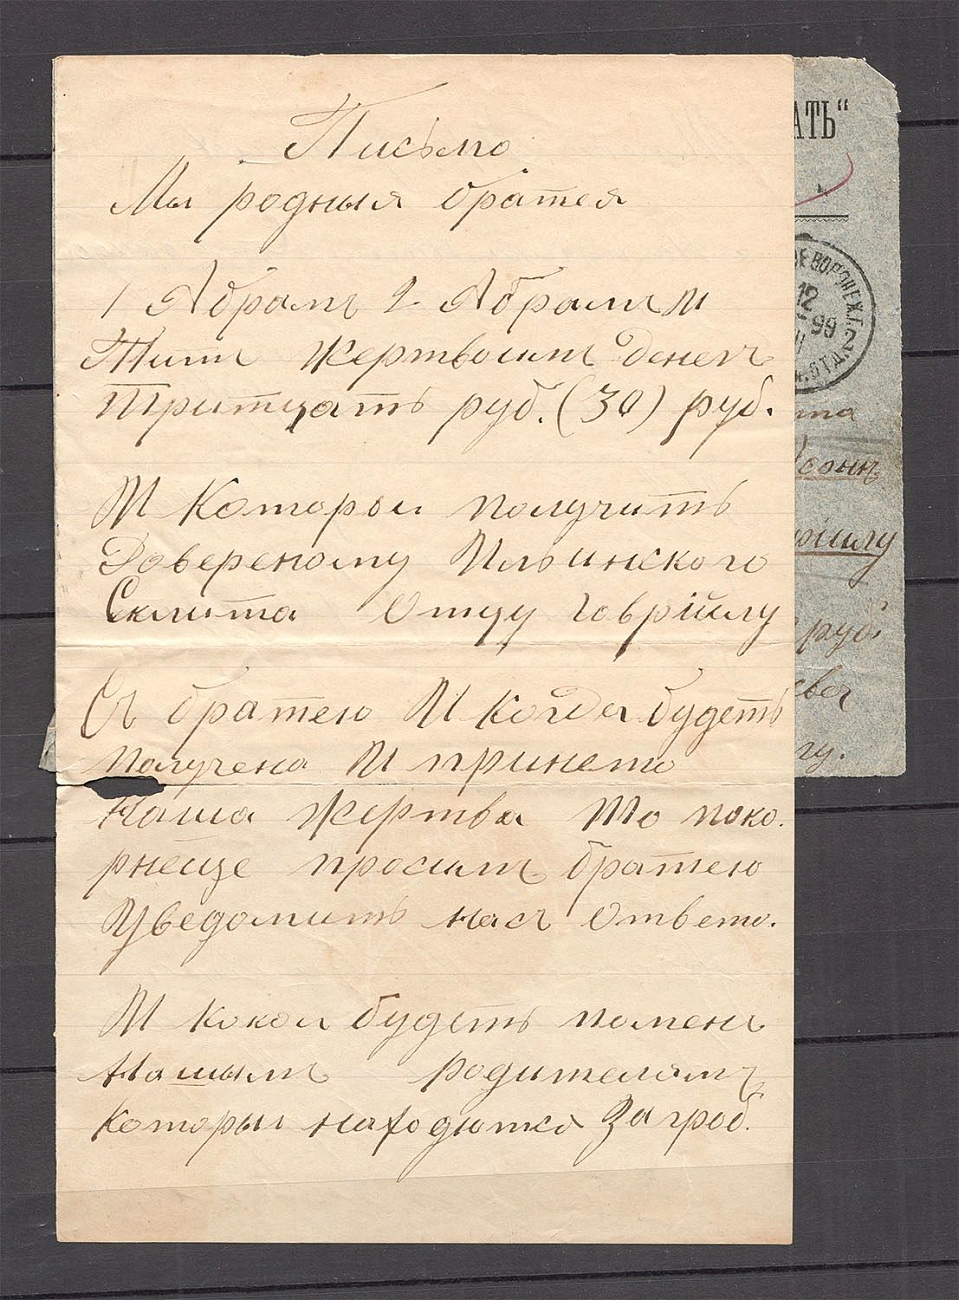 Письмо
Мы родныя братея
1 Абрамъ 2 Абрамъ И
Титъ жертвоимъ денегъ
тритцать руб. (30) руб.
И Которыи получить
Довереному Ильинского
Скита Отцу Говрійлу
Съ братею И когда будеть
получена И принето
наша жертва То поко.
рнеще просимъ братею
Уведомить насъ Ответо.
И кокои будеть помень
Нашымъ родителямъ
которыи находютса За гроб.
АТЬ“
ВОРОНЕЖ. Г.
12
99
II
ОТД.
руб.